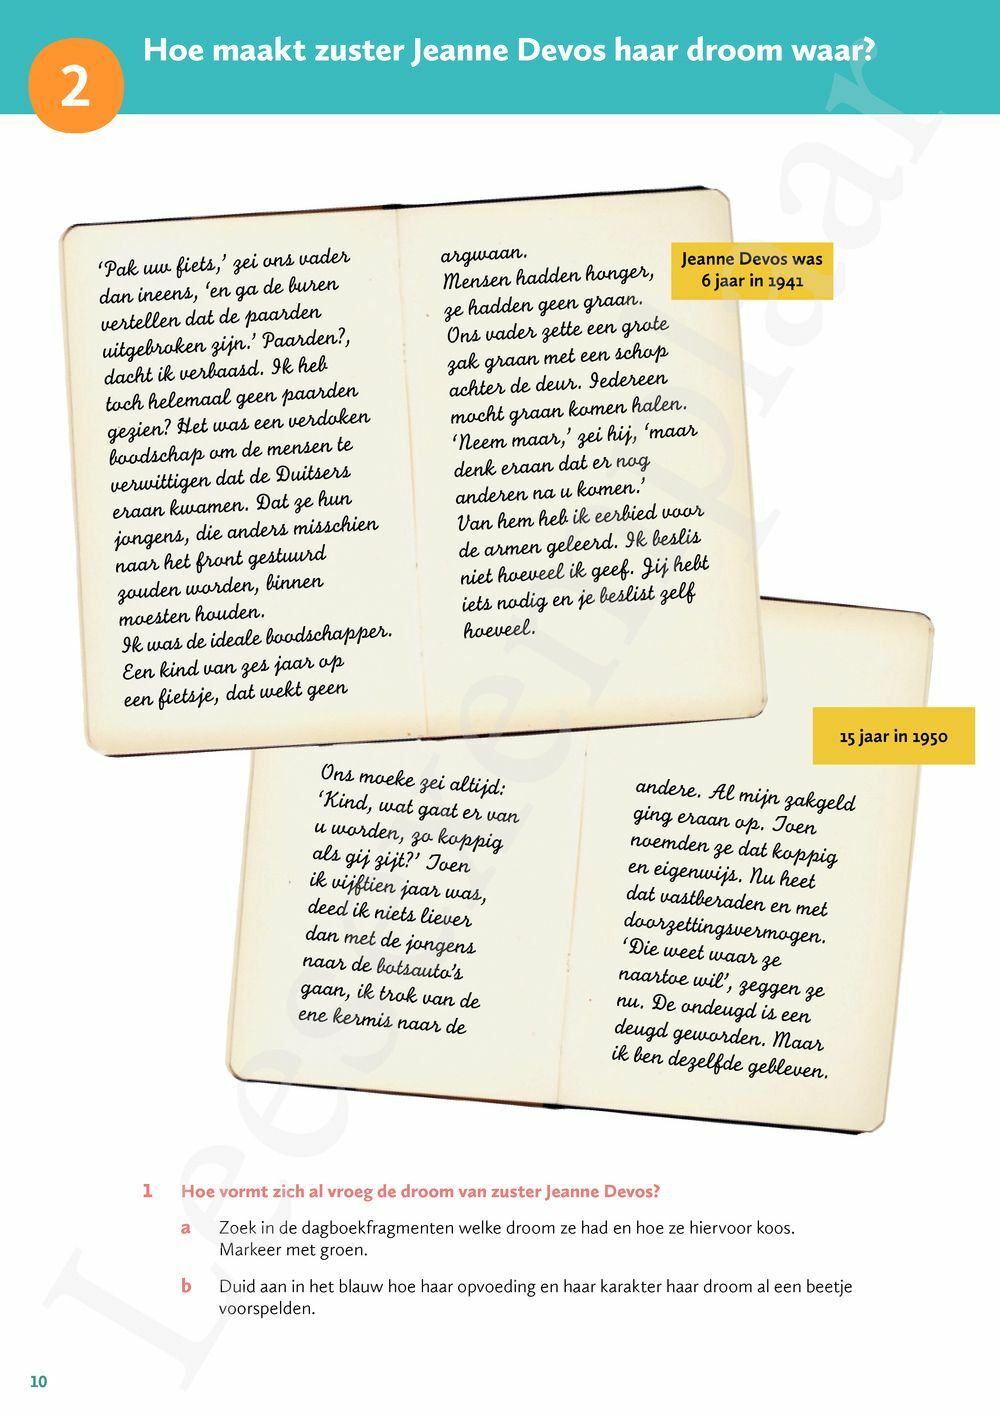 2
Hoe maakt zuster Jeanne Devos haar droom waar?
‘Pak uw fiets,’ zei ons vader
dan ineens, ‘en ga de buren
vertellen dat de paarden
uitgebroken zijn.’ Paarden?,
dacht ik verbaasd. Ik heb
toch helemaal geen paarden
gezien? Het was een verdoken
boodschap om de mensen te
verwittigen dat de Duitsers
eraan kwamen. Dat ze hun
jongens, die anders misschien
naar het front gestuurd
zouden worden, binnen
moesten houden.
Ik was de ideale boodschapper.
Een kind van zes jaar op
een fietsje, dat wekt geen
argwaan.
Mensen hadden honger,
ze hadden geen graan.
Ons vader zette een grote
zak graan met een schop
achter de deur. Iedereen
mocht graan komen halen.
‘Neem maar,’ zei hij, ‘maar
denk eraan dat er nog
anderen na u komen.’
Van hem heb ik eerbied voor
de armen geleerd. Ik beslis
niet hoeveel ik geef. Jij hebt
iets nodig en je beslist zelf
hoeveel.
Jeanne Devos was
6 jaar in 1941
Ons moeke zei altijd:
‘Kind, wat gaat er van
u worden, zo koppig
als gij zijt?’ Toen
ik vijftien jaar was,
deed ik niets liever
dan met de jongens
naar de botsauto’s
gaan, ik trok van de
ene kermis naar de
andere. Al mijn zakgeld
ging eraan op. Toen
noemden ze dat koppig
en eigenwijs. Nu heet
dat vastberaden en met
doorzettingsvermogen.
‘Die weet waar ze
naartoe wil’, zeggen ze
nu. De ondeugd is een
deugd geworden. Maar
ik ben dezelfde gebleven.
15 jaar in 1950
1 Hoe vormt zich al vroeg de droom van zuster Jeanne Devos?
a Zoek in de dagboekfragmenten welke droom ze had en hoe ze hiervoor koos.
Markeer met groen.
b Duid aan in het blauw hoe haar opvoeding en haar karakter haar droom al een beetje
voorspelden.
10
Leesexemplaar